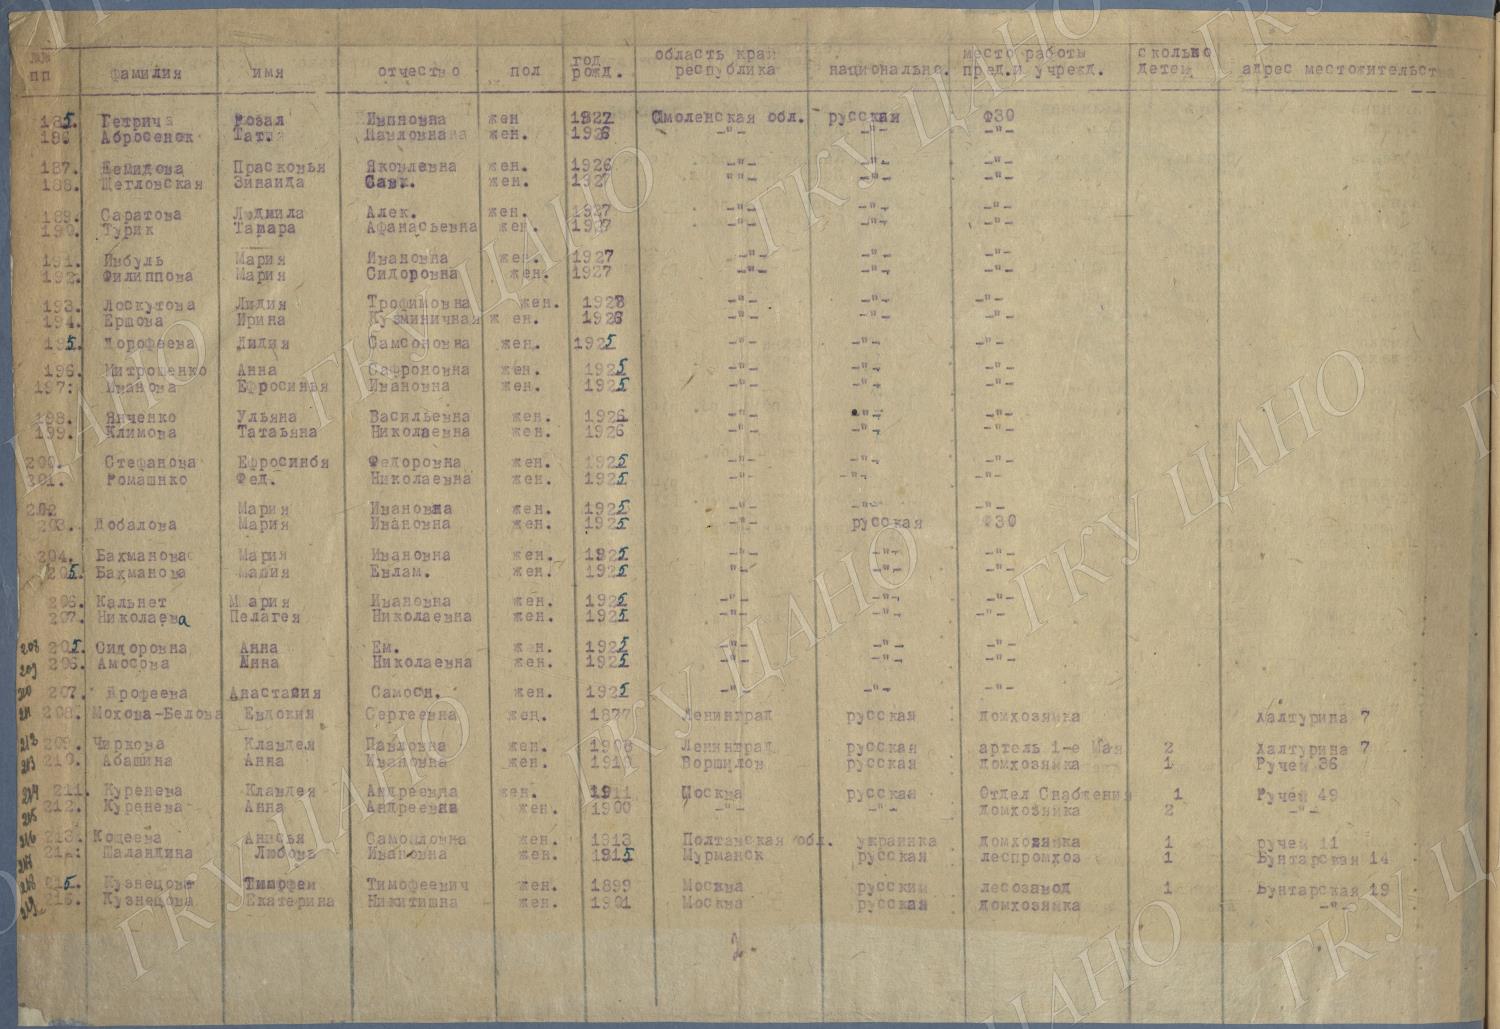 №№ пп фамилия имя отчество пол год рожд. область край республика национальна. место работы пред.и учрежд. сколько детей адрес местожительст
185. Петрича Розал Ивпновна жен 1927 Смоленская обл. русская ФЗО
186 Абросенок Татш Павловнана жен. 1926 -"- -"- -"-
187. Демидова Прасковья Яковлевна жен. 1926 -"- -"- -"-
188. Щегловская Зинаида Савт. жен. 1927 -"- -"- -"-
189. Саратова Людмила Алек. жен. 1927 -"- -"- -"-
190. Турик Тамара Афанасьевна жен. 1927 -"- -"- -"-
191. Цыбуль Мария Ивановна жен. 1927 -"- -"- -"-
192. Филиппова Мария Сидоровна жен. 1927 -"- -"- -"-
193. Лоскутова Лидия Трофимовна жен. 1928 -"- -"- -"-
194. Ершова Ирина Кузминичная жен. 1926 -"- -"- -"-
195. Дорофеева Лидия Самсоновна жен. 1925 -"- -"- -"-
196. Митрошенко Анна Сафроновна жен. 1925 -"- -"- -"-
197. Иванова Ефросинья Ивановна жен. 1925 -"- -"- -"-
198. Янченко Ульяна Васильевна жен. 1926 -"- -"- -"-
199. Климова Татаьяна Николаевна жен. 1926 -"- -"- -"-
200. Стефанова Ефросинбя Федоровна жен. 1925 -"- -"- -"-
201. Ромашнко Фед. Николаевна жен. 1925 -"- -"- -"-
202 Мария Ивановна жен. 1925 -"- -"- -"-
203. Лобалова Мария Ивановна жен. 1925 -"- русская ФЗО
204. Бахманова Мария Ивановна жен. 1925 -"- -"- -"-
205. Бахманова Мария Евлам. жен. 1925 -"- -"- -"-
206. Кальнет Мария Ивановна жен. 1925 -"- -"- -"-
207. Николаева Пелагея Николаевна жен. 1925 -"- -"- -"-
208 205. Сидоровна Анна Ем. жен. 1925 -"- -"- -"-
209 206. Амосова Анна Николаевна жен. 1925 -"- -"- -"-
210 207. Ярофеева Анастасия Самосн. жен. 1925 -"- -"- -"-
211 208. Мохова-Белова Евдокия Сергеевна жен. 1877 Ленинград русская домхозяйка Халтурина 7
212 209. Чиркова Клавдея Павловна жен. 1908 Ленинград русская артель 1-е Мая 2 Халтурина 7
213 210. Абашина Анна Ивановна жен. 1910 Воршилов русская домхозяйка 1 Ручей 36
214 211. Куренева Клавдея Андреевна жен. 1911 Москва русская Отдел Снабжения 1 Ручей 49
215 212. Куренева Анна Андреевна жен. 1900 -"- -"- домхозяйка 2 -"-
216 213. Кощеева Анисья Самойловна жен. 1913 Полтавская обл. украинка домхозяйка 1 ручей 11
217 214. Шаландина Любовь Ивановна жен. 1915 Мурманск русская леспромхоз 1 Бунтарская 14
218 215. Кузнецова Тимофей Тимофеевич жен. 1899 Москва русский лесозавод 1 Бунтарская 19
219 216. Кузнецова Екатерина Никитишна жен. 1901 Москва русская домхозяйка -"-
2.
ГКУ ЦАНО